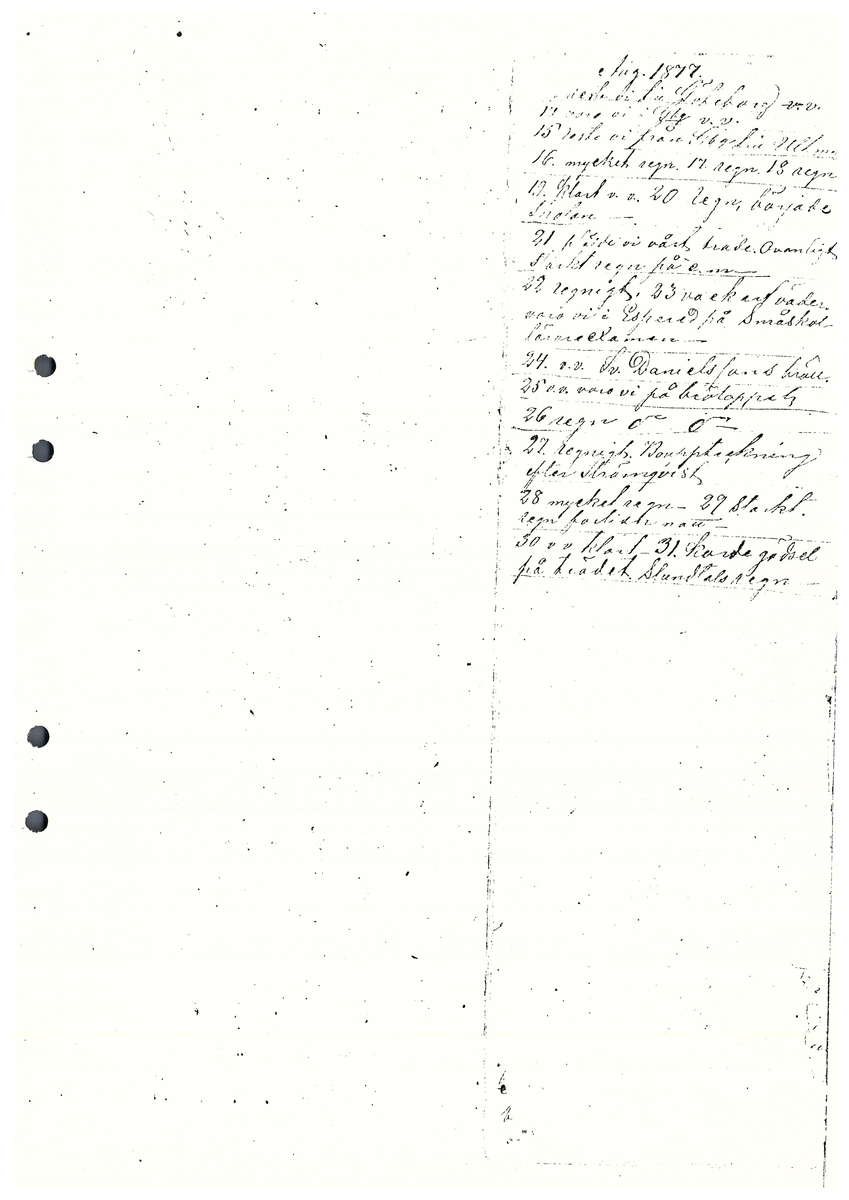 Aug. 1877.
vi Göteborg v.v.
vi i Gbg v.v.
15 reste vi från Gbg
16. mycket regn. 17 regn. 18 regn
19. klart v.v. 20 regn, började
skolan —
21 vi vårt träde. Ovanligt
starkt regn på e.m —
22 regnigt. 23 vackert väder.
voro vi i Espered på Småskol-
lärareexamen —
24. v.v. Sv. Danielssons bröll.
25 v.v. voro vi på
26 regn
27. regnigt. Bouppteckning
efter Strömqvist
28 mycket regn — 29 starkt
regn förliden natt —
30 v v klart — 31. körde gödsel
på trädet. Stundtals regn —